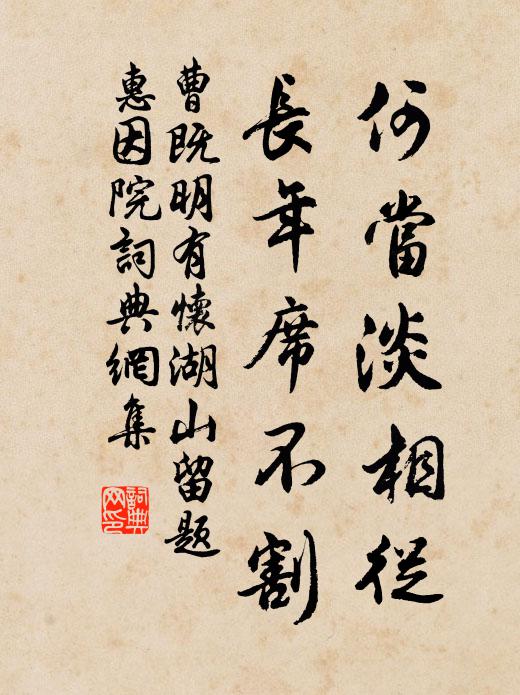 何當淡相從
長年席不割
曹既明有懷湖山留題
惠因院詞典網集
詞典
网印